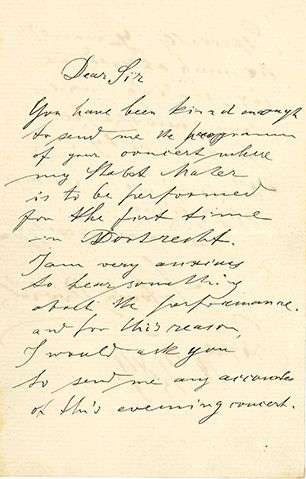 Dear Sir
You have been kind enough
to send me the programm
of your concert where
my Stabat Mater
is to be performed
for the first time
in Dortrecht.
I am very anxious
to hear something
about the performance.
and for this reason
I would ask you
to send me any accounts
of this evening concert.